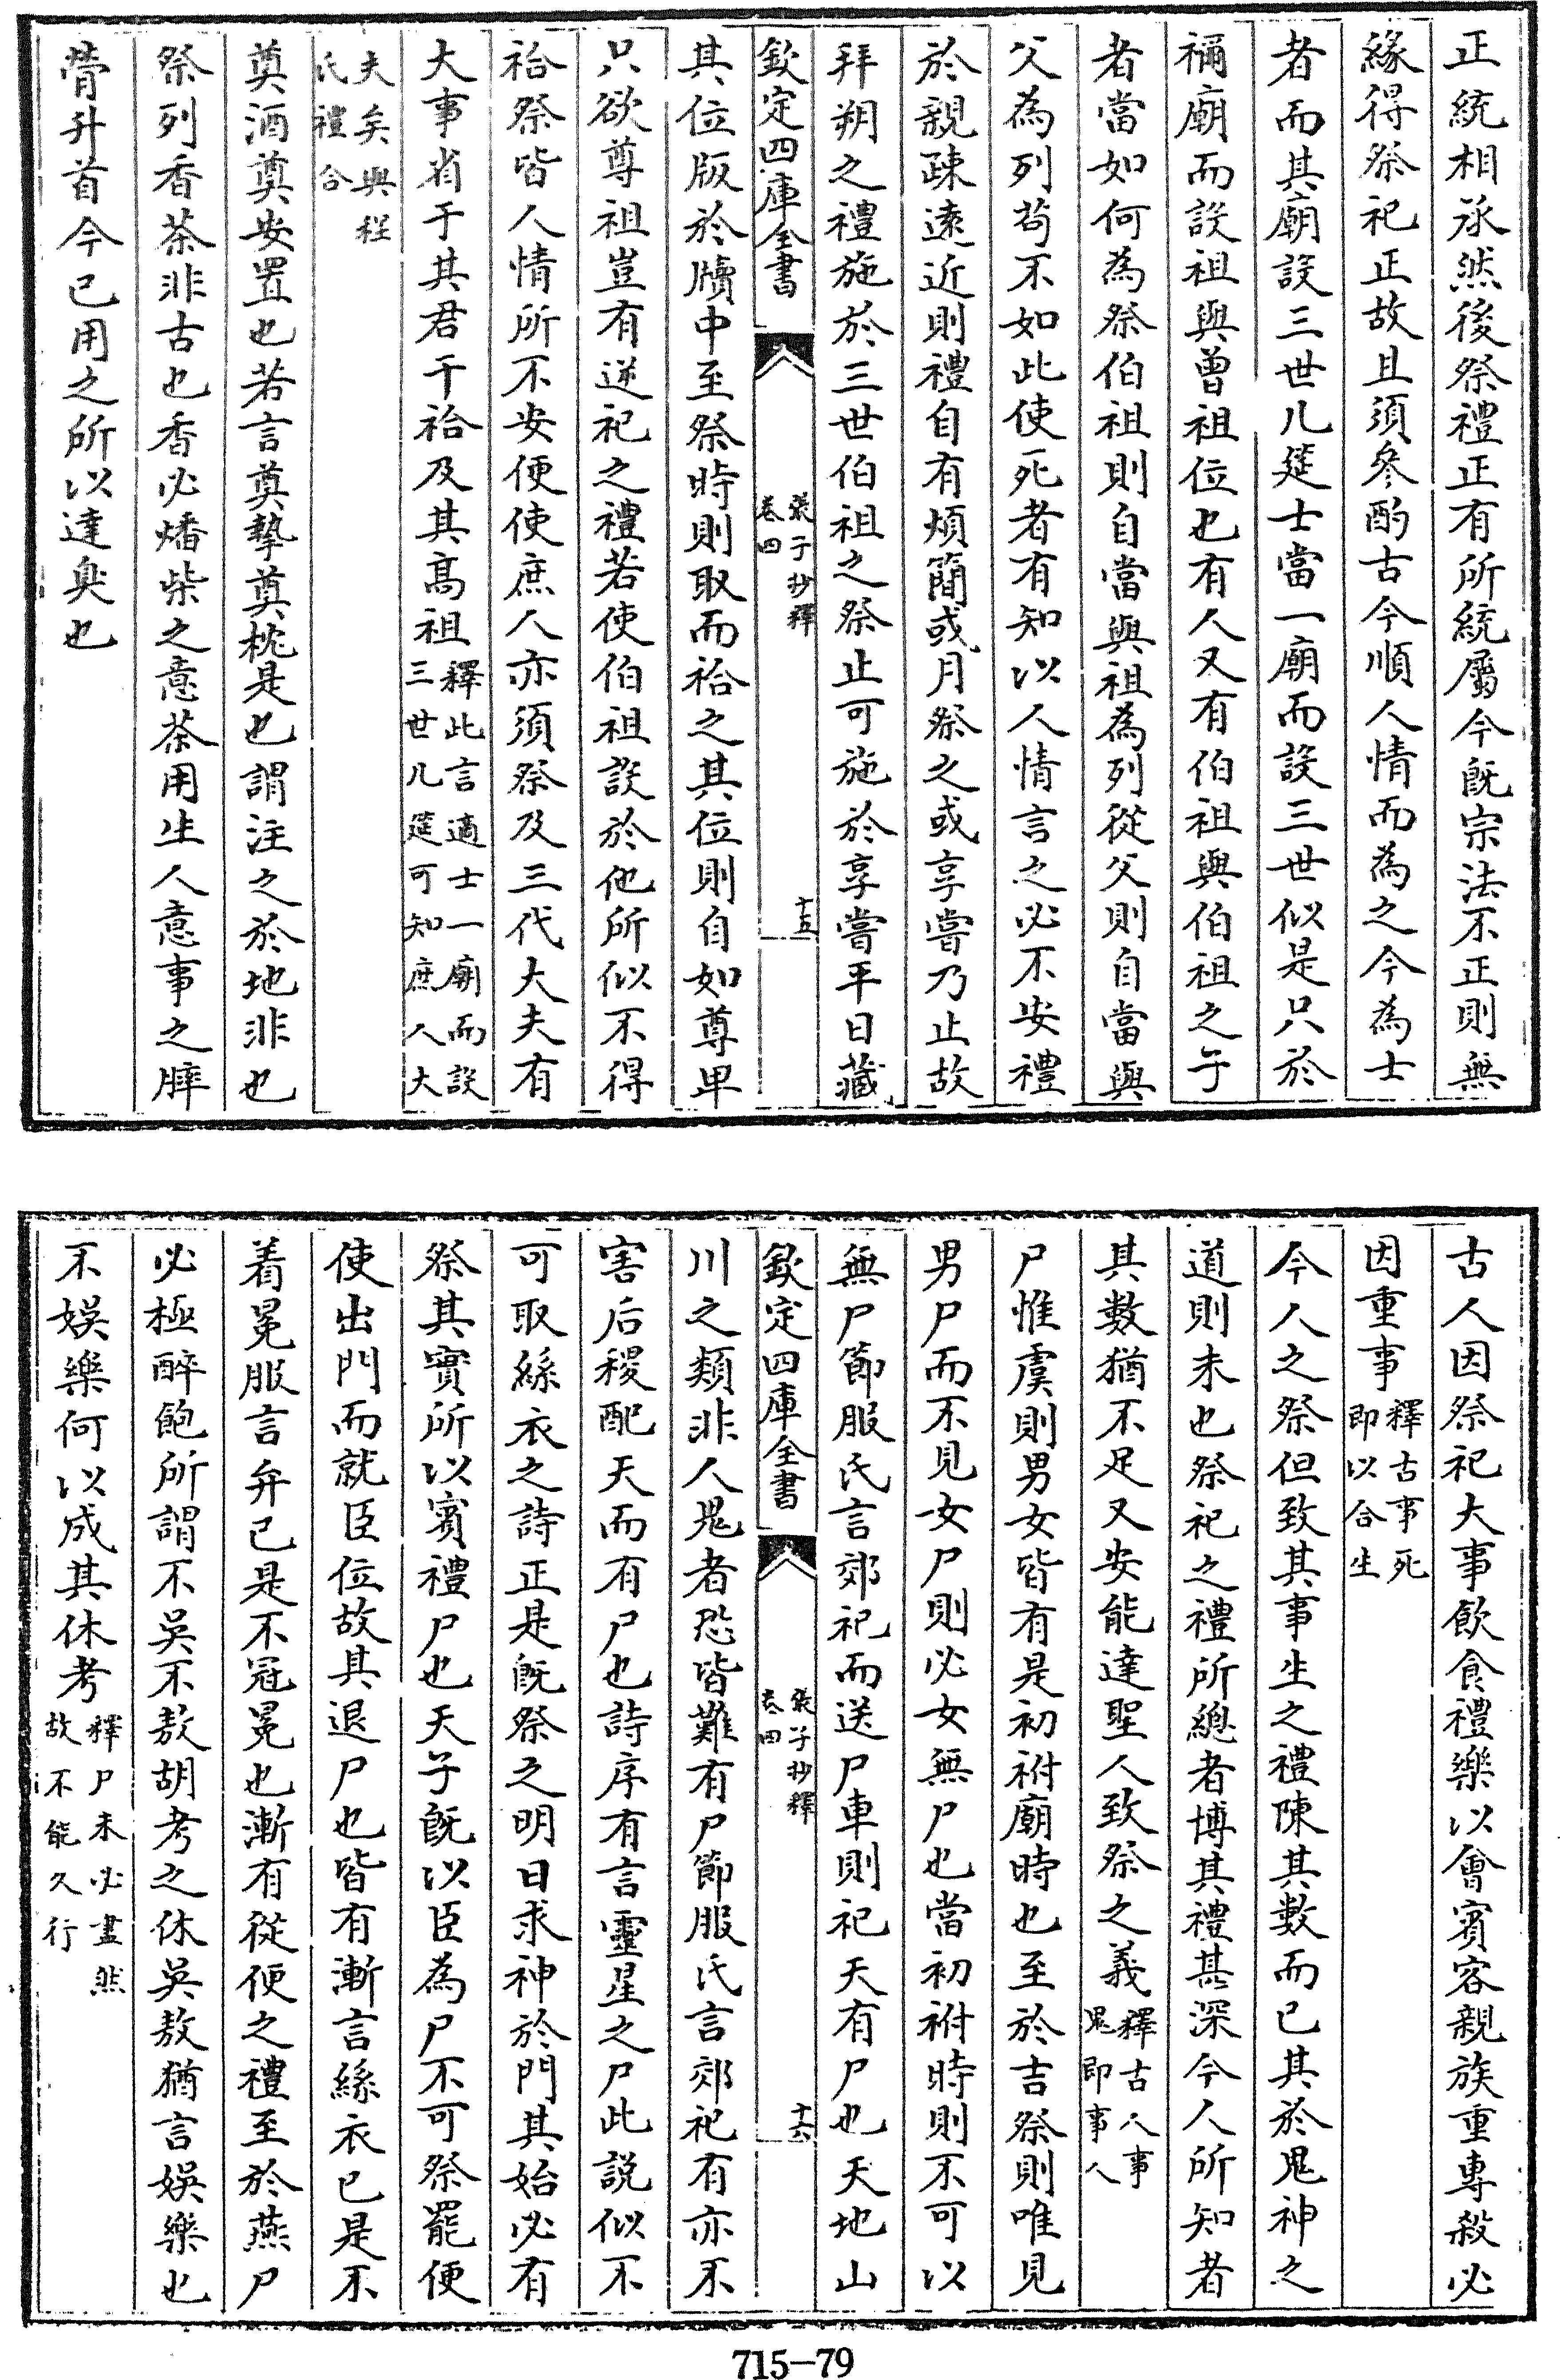 正統相承然後祭禮正有所統屬今旣宗法不正則無
緣得祭祀正故且須參酌古今順人情而為之今為士
者而其廟設三世几筵士當一廟而設三世似是只於
禰廟而設祖與曾祖位也有人又有伯祖與伯祖之子
者當如何為祭伯祖則自當與祖為列從父則自當與
父為列苟不如此使死者有知以人情言之必不安禮
於親疎遠近則禮自有煩簡或月祭之或享嘗乃止故
拜朔之禮施於三世伯祖之祭止可施於享嘗平日藏
欽定四庫全書
張子抄釋
卷四
十五
其位版於牘中至祭時則取而祫之其位則自如尊卑
只欲尊祖豈有逆祀之禮若使伯祖設於他所似不得
祫祭皆人情所不安便使庶人亦須祭及三代大夫有
大事省于其君干祫及其高祖釋此言適士一廟而設
三世几筵可知庶人大
夫矣與程
氏禮合
奠酒奠安置也若言奠摯奠枕是也謂注之於地非也
祭列香茶非古也香必燔柴之意茶用生人意事之膟
膋升首今已用之所以達臭也
古人因祭祀大事飲食禮樂以會賓客親族重專殺必
因重事釋古事死
即以合生
今人之祭但致其事生之禮陳其數而已其於鬼神之
道則未也祭祀之禮所總者博其禮甚深今人所知者
其數猶不足又安能達聖人致祭之義釋古人事
鬼即事人
尸惟虞則男女皆有是初祔廟時也至於吉祭則唯見
男尸而不見女尸則必女無尸也當初祔時則不可以
無尸節服氏言郊祀而送尸車則祀天有尸也天地山
欽定四庫全書
張子抄釋
卷四
十六
川之類非人鬼者恐皆難有尸節服氏言郊祀有亦不
害后稷配天而有尸也詩序有言靈星之尸此說似不
可取絲衣之詩正是旣祭之明日求神於門其始必有
祭其實所以賓禮尸也天子旣以臣為尸不可祭罷便
使出門而就臣位故其退尸也皆有漸言絲衣已是不
着冕服言弁已是不冠冕也漸有從便之禮至於燕尸
必極醉飽所謂不吳不敖胡考之休吳敖猶言娛樂也
不娛樂何以成其休考釋尸未必盡然
故不能久行
715—79